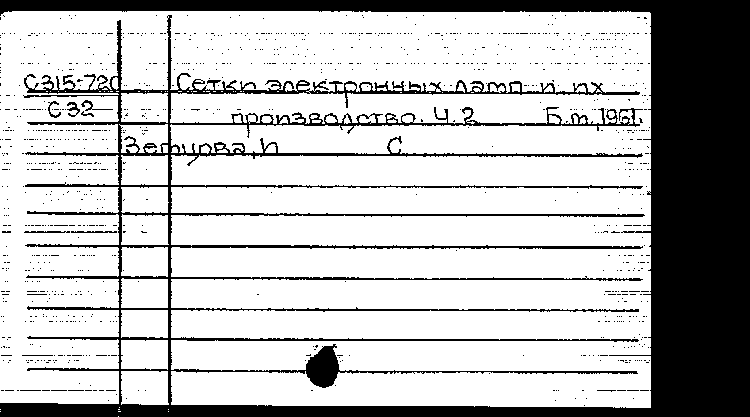 С315-720 Сетки электронных ламп и их
С32 производство. Ч.2 Б.м., 1961.
С